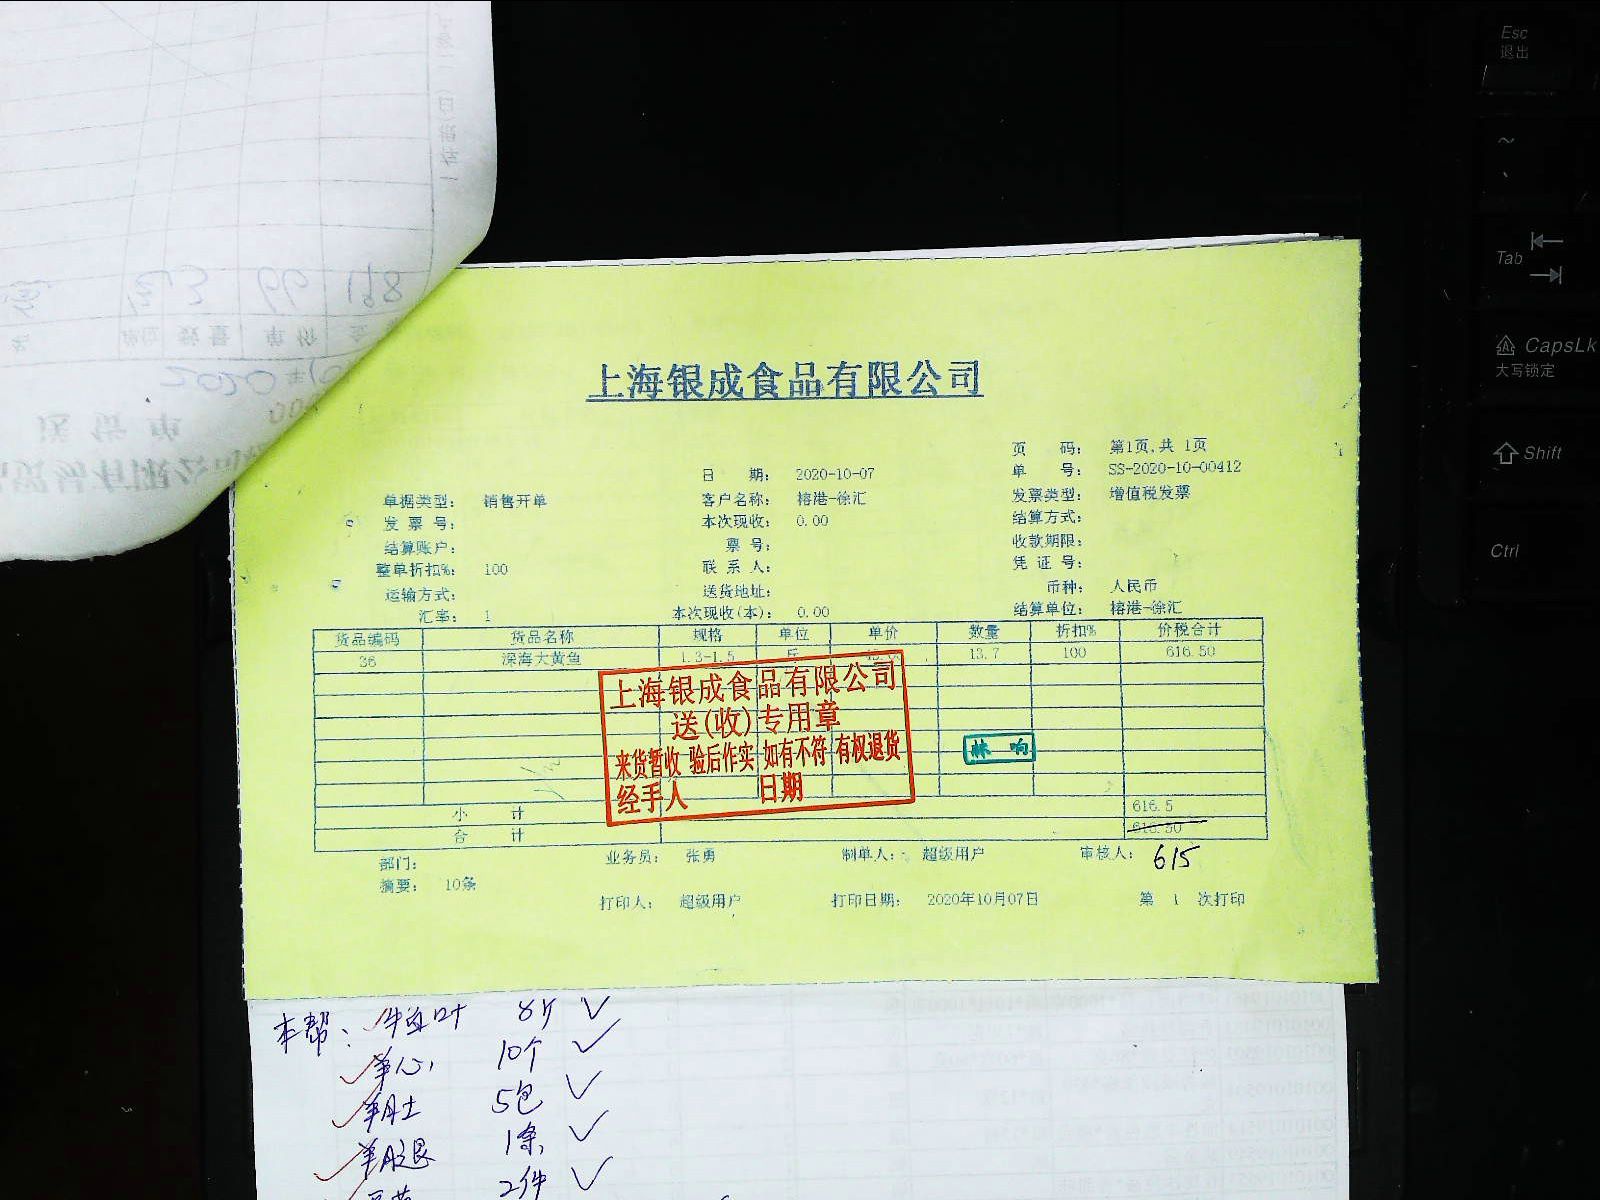 上海银成食品有限公司
页 码: 第1页,共 1页
日 期: 2020-10-07
单 号: SS-2020-10-00412
单据类型: 销售开单
客户名称: 榕港-徐汇
发票类型: 增值税发票
发 票 号:
本次现收: 0.00
结算方式:
结算账户:
票 号:
收款期限:
整单折扣%: 100
联 系 人:
凭 证 号:
运输方式:
送货地址:
币种: 人民币
汇率: 1
本次现收(本): 0.00
结算单位: 榕港-徐汇
货品编码 货品名称 规格 单位 单价 数量 折扣% 价税合计
36 深海大黄鱼 1.3-1.5 斤 13.7 100 616.50
上海银成食品有限公司
送(收)专用章
来货暂收 验后作实 如有不符 有权退货
经手人 日期
林 响
小 计 616.5
合 计 616.50
615
部门:
业务员: 张勇
制单人: 超级用户
审核人:
摘要: 10条
打印人: 超级用户
打印日期: 2020年10月07日
第 1 次打印
本帮: 牛百叶 8斤
羊心 10个
羊肚 5包
羊腿 1条
2件
Esc
退出
Tab
CapsLk
大写锁定
Shift
Ctrl